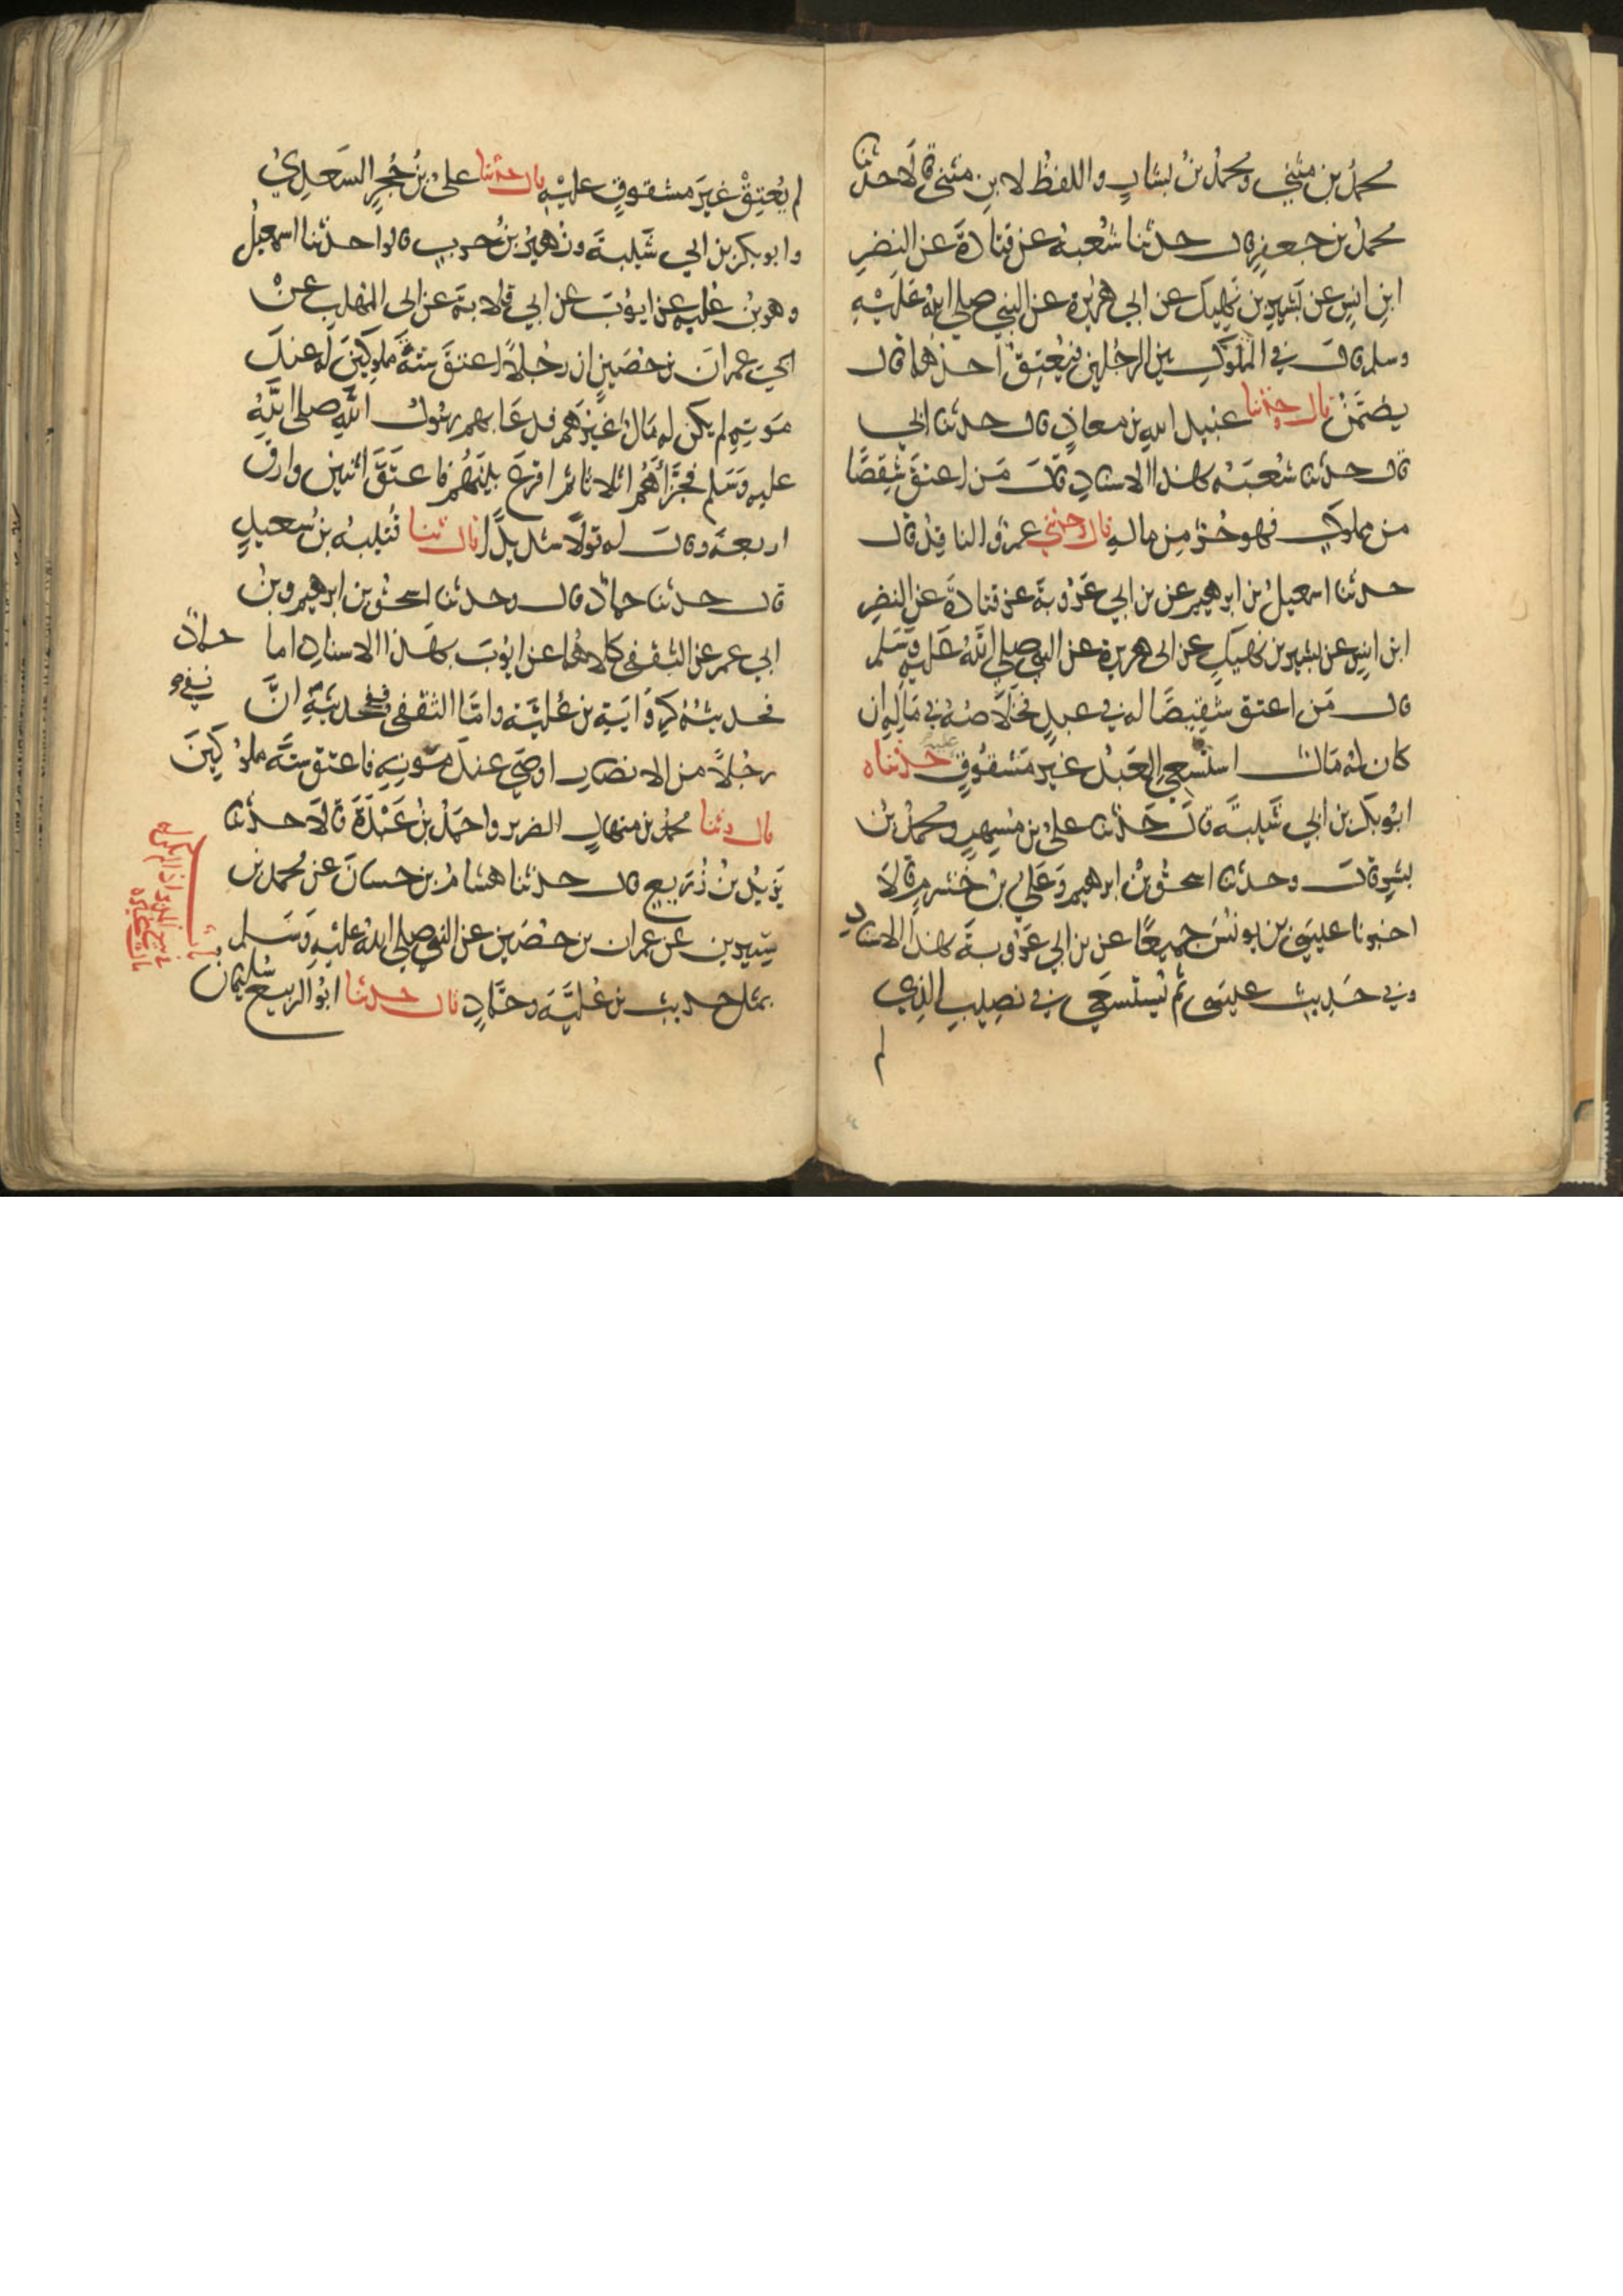 محمدُ بن مثني ومحمدُ بنُ بشارٍ واللفظُ لابنِ مثني قالَا حدثنا
محمدُ بن جعفرٍ قال حدثنا شُعبةُ عن قتادةَ عن النضرِ
ابنِ انسٍ عن بَشيرِ بن نَهيكٍ عن ابي هُريرة عن النبي صلى اللهُ عَليْهِ
وسلم قال في المملوكِ بين الرجُلينِ فيُعتِقُ احدُهُما قال
يضمَنُ قال حدثنا عبيد الله بن معاذٍ قال حدثنا ابي
قال حدثنا شُعبَةُ بهذا الاسنادِ قال مَن اعتقَ شِقصًا
من مملوكٍ فهو حُرٌّ مِن مالهِ قال وحدثني عمرٌو الناقِدُ قال
حدثنا اسمعيلُ بن ابرهيم عن بن ابي عَرُوبةَ عن قتادةَ عن النضرِ
ابن انسٍ عن بشيرِ بن نَهيكٍ عن ابي هريرة عن النبي صلى اللهُ عَليهِ وَسَلم
قال مَن اعتق شقِيصًا له في عبدٍ فخَلَاصُهُ في مَالِهِ ان
كان لهُ مَالٌ استُسعِيَ العَبدُ غيرَ مَشقُوقٍ عليه حدثناه
ابُو بكر بن ابي شَيبةَ قالَ حَدثنا عليُّ بن مُسهِرٍ ومحمدُ بنُ
بشرٍ قال وحدثنا اسحقُ بْنُ ابرهيم وَعَليُّ بنُ خَشْرمٍ قالَا
اخبرنا عيسَى بن يونُسَ جميعًا عن بن ابي عَرُوبةَ بهذا الاسنادِ
وفي حَديثِ عيسَى ثُم يُستسعَى في نصيبِ الذي
لم
لم يُعتِقْ غيرَ مشقوقٍ عليْهِ قال حدثنا عليُّ بنُ حُجرٍ السَعدِيُّ
وابو بكر بن ابي شَيبةَ وزُهيرُ بنُ حربٍ قالوا حدثنا اسمعيلُ
وهو بنُ عُليه عن ايوُبَ عن ابي قِلابةَ عن ابي المهلبِ عنْ
ابي عمرانَ بن حُصَينٍ ان رجُلاً اعتقَ ستةَ مملوكينَ له عندَ
مَوتِهِ لم يكن له مَالٌ غيرَهم فدعَا بهم رسُولُ اللَّهِ صلى اللَّهُ
عليه وَسَلم فجزَّأهُم اثلاثا ثم اقرعَ بينَهُم فاعتَقَ اثنين وارقَّ
اربعةً وقال له قولًا شديدًا قال ثنا قُتيبةُ بن سَعيدٍ
قال حدثنا حمادٌ قال وحدثنا اسحقُ بن ابرهيم وبنُ
ابي عمر عن الثقفي كلاهُما عن ايوُبَ بهَذا الاسنادِ اما حمادٌ
فحديثُهُ كرِوَايَةِ بن عُليَّة واما الثقفي ففي حديثهِ انَّ
رجُلاً من الانصارِ اوصَى عندَ مَوتِهِ فاعتق ستَّةَ مملوُكينَ
قال وثنا محمدُ بن منهالٍ الضرير واحمَدُ بنُ عَبْدَةَ قالَا حدثنا
يَزيدُ بنُ زُرَيعٍ قال حدثنا هشامُ بن حسانَ عن محمد بن
سِيرين عن عمران بن حصَين عن النبي صلى اللهُ عليْهِ وَسَلم
بمثلِ حديث بن عُليَّةَ وحمَّادٍ قال حدثنا ابُو الربيع سُليمان